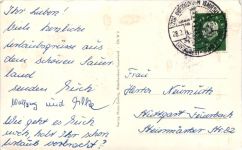 Ihr Lieben!
Viele herzliche
Urlaubsgrüsse aus
dem schönen Sauer
land
senden Euch
Wolfgang und
Wie geht es Euch
noch, habt Ihr schon
Urlaub verbracht?
Frau
Naimuth
Stuttgart Feuerbach
Steiermärker Str. 82